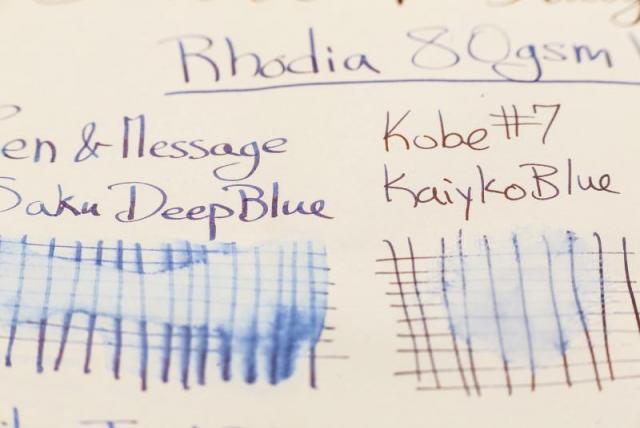 Rhodia 80gsm
Pen & Message
Saku DeepBlue
Kobe #7
KaiykoBlue